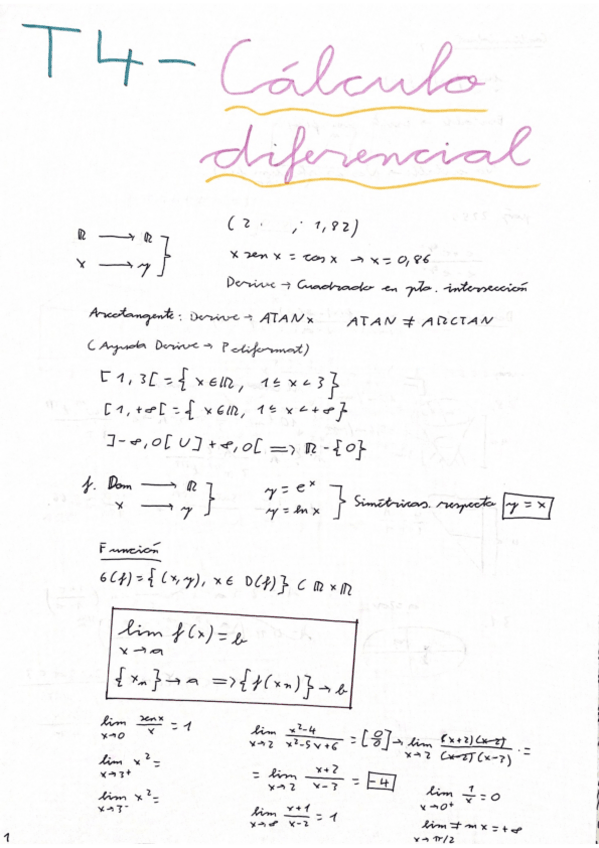 T4- Cálculo
diferencial
ℝ → ℝ }
x → y }
(2. ,; 1,82)
x sen x = cos x → x = 0,86
Derive → Cuadrado en pto. intersección
Arcotangente: Derive → ATANx ATAN ≠ ARCTAN
(Ayuda Derive →
[1, 3[ = { x ∈ ℝ, 1 ≤ x < 3 }
[1, +∞[ = { x ∈ ℝ, 1 ≤ x < +∞ }
]-∞, 0[ U ]+∞, 0[ => ℝ - {0}
f. Dom → ℝ }
x → y }
y = e^x }
y = ln x }
Simétricas. respecto y = x
Función
G(f) = { (x, y), x ∈ D(f) } ⊂ ℝ x ℝ
lim f(x) = b
x → a
{xn} → a => {f(xn)} → b
lim x→0 sen x / x = 1
lim x→3+ x² =
lim x→3- x² =
lim x→2 (x²-4)/(x²-5x+6) = [0/0] → lim x→2 (x+2)(x-2)/(x-2)(x-3) . =
= lim x→2 (x+2)/(x-3) = -4
lim x→∞ (x+1)/(x-2) = 1
lim x→0+ 1/x = 0
x→π/2
1